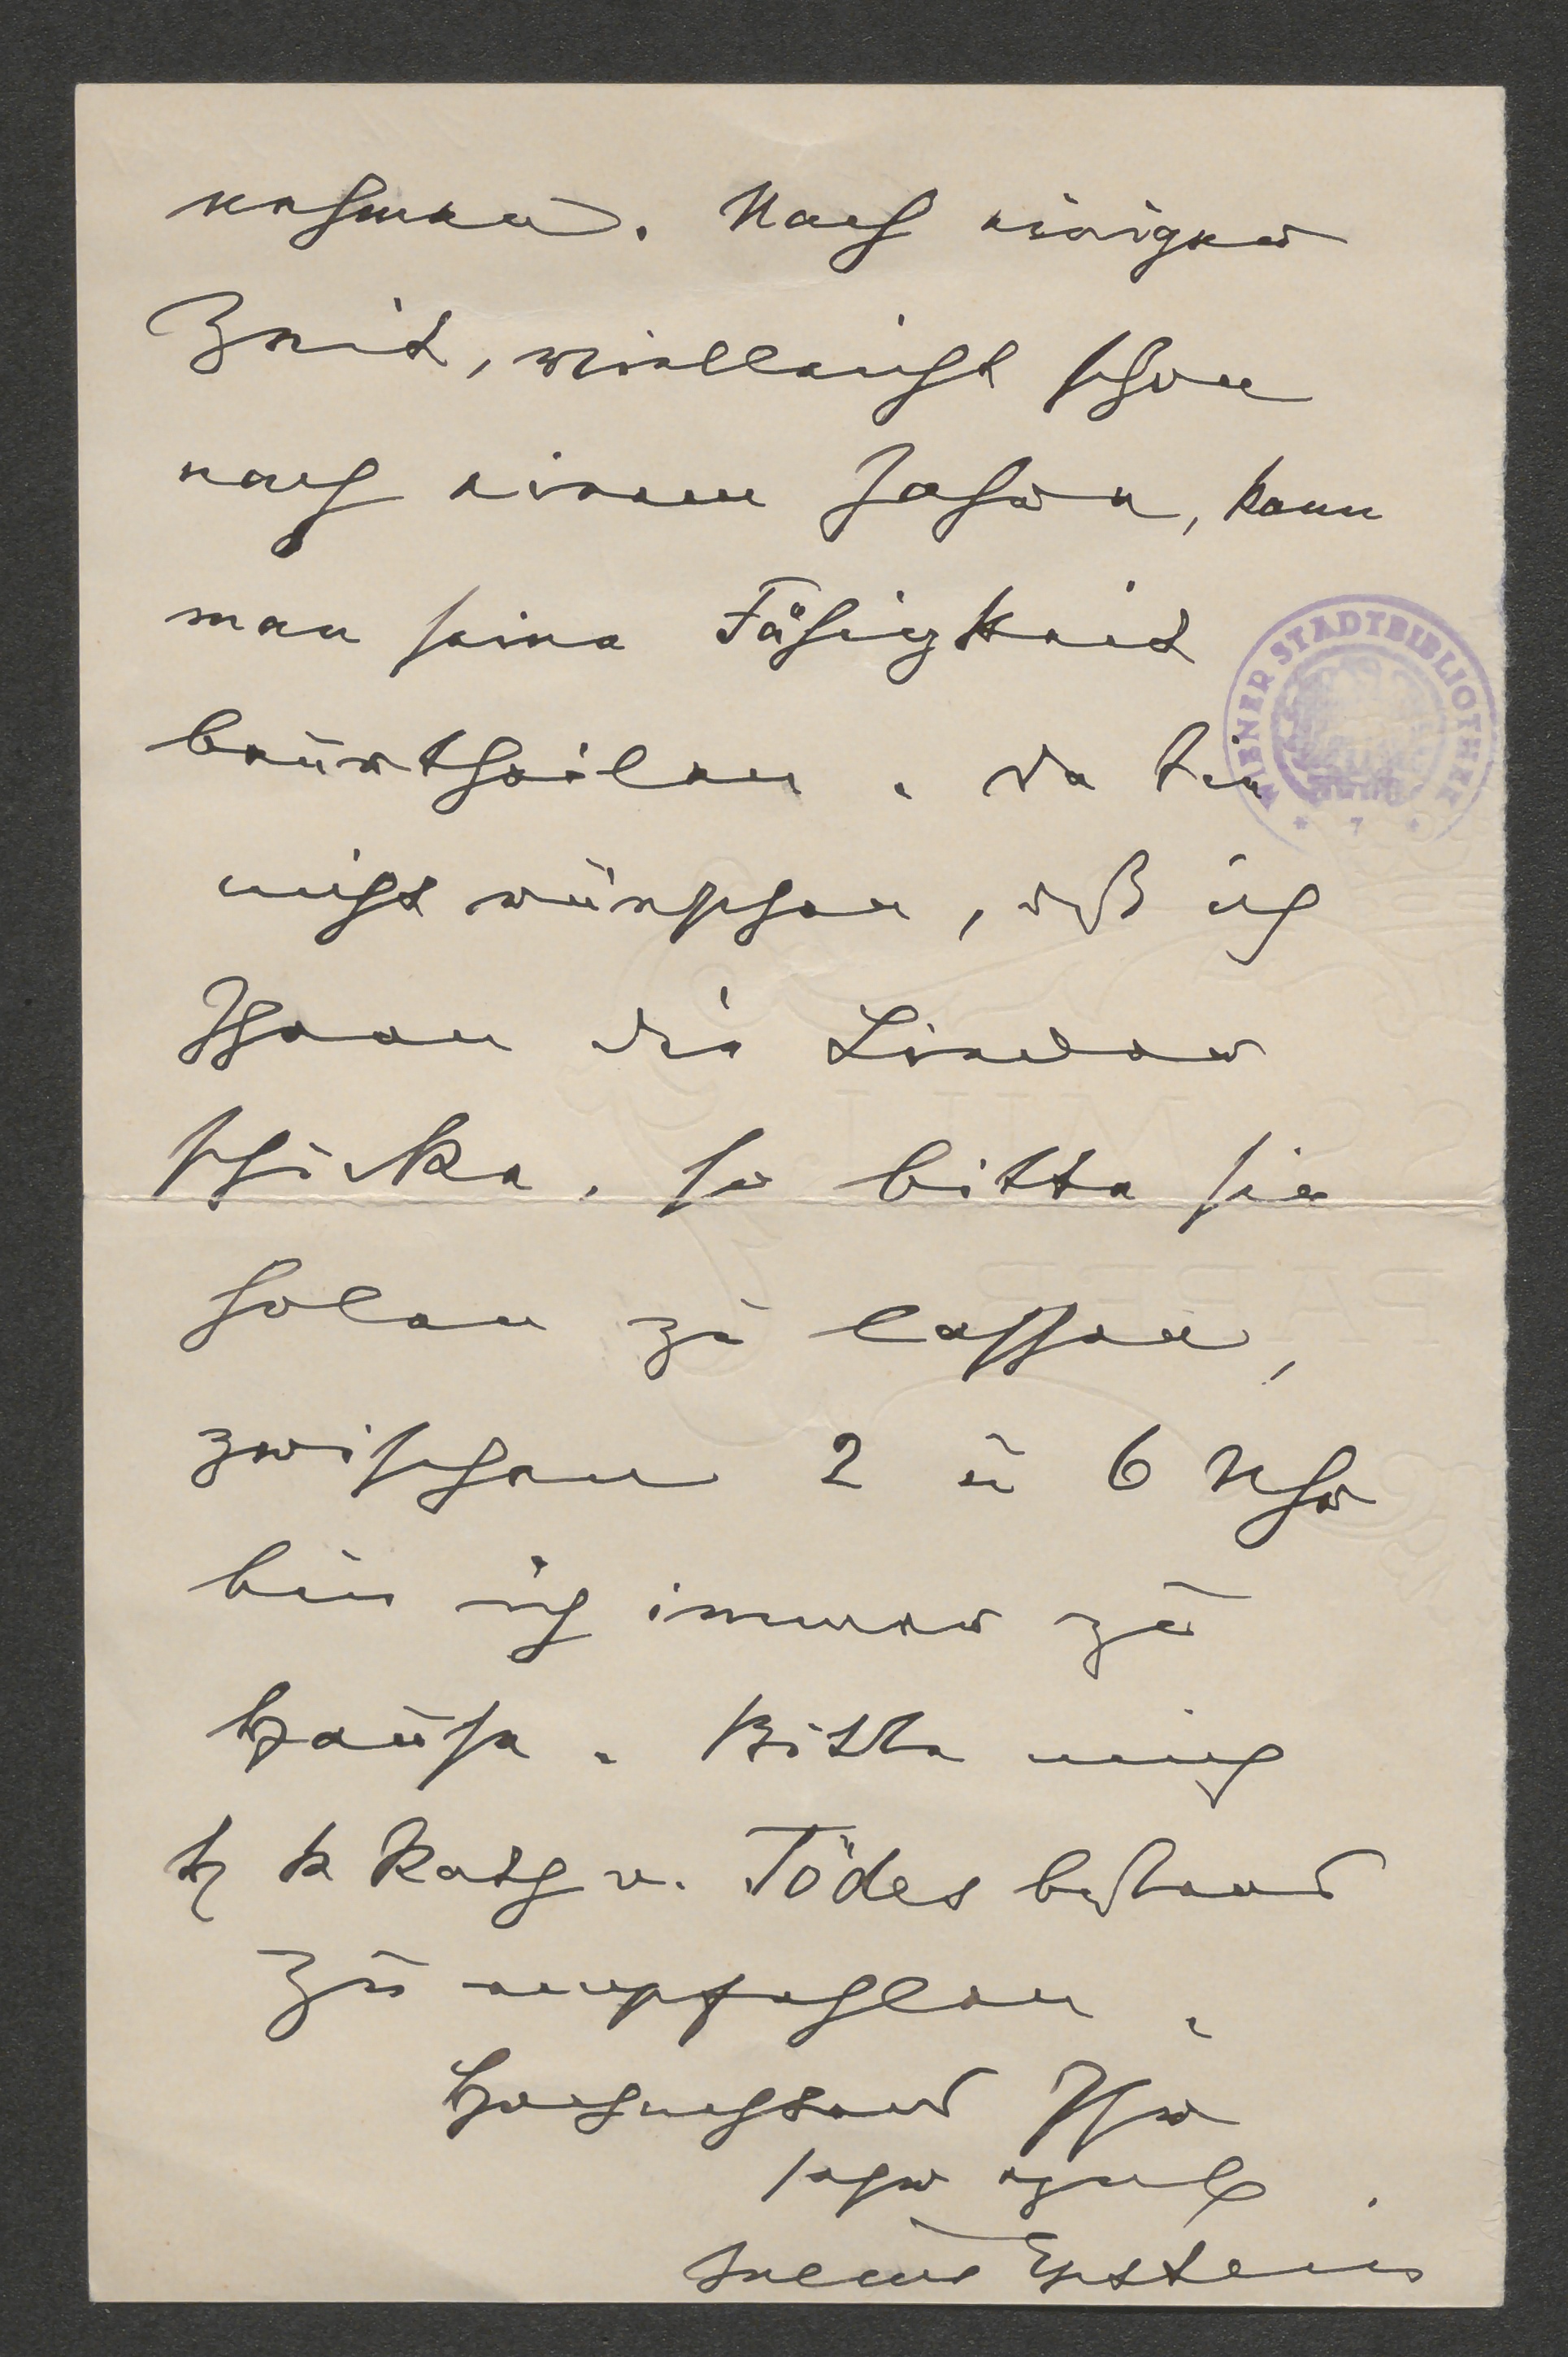 nehmen. Nach einiger
Zeit, vielleicht schon
nach einem Jahre, kann
man seine Fähigkeit
beurtheilen. Da Sie
nicht wünschen, dß ich
Ihnen die Lieder
schicke, so bitte sie
holen zu lassen,
zwischen 2 u 6 Uhr
bin ich immer zu
Hause. Bitte mich
H k Rath v. Tödes bestens
zu empfehlen.
Hochachtend Ihr
sehr ergeb.
Julius Epstein
WIENER STADTBIBLIOTHEK
* 7 *